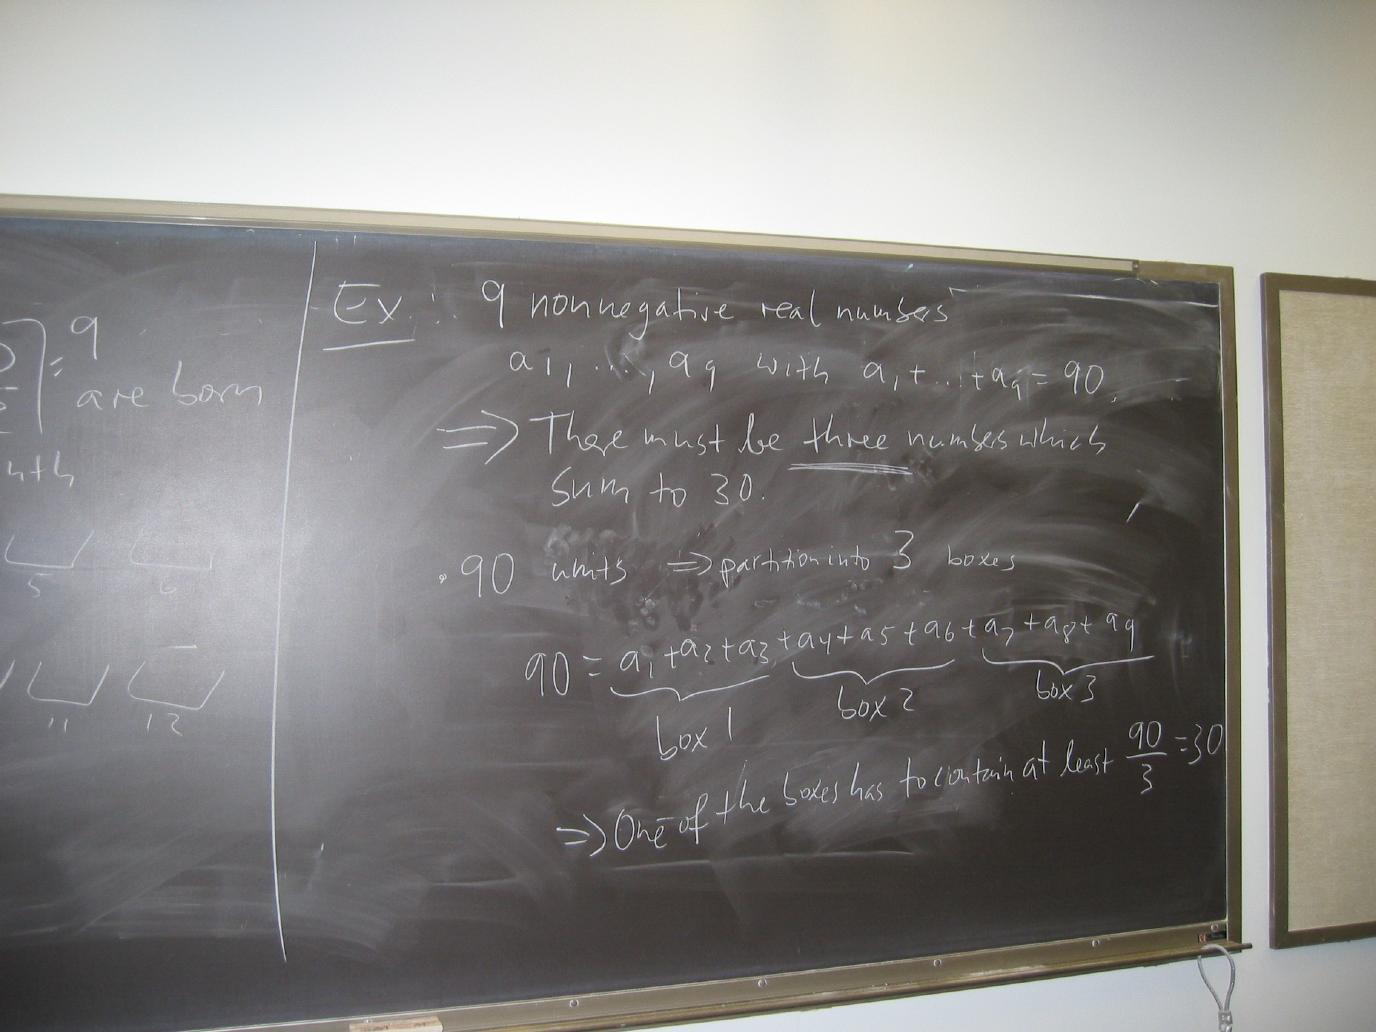 = 9
are born
nth
5 6
11 12
Ex: 9 nonnegative real numbers
a1, ..., a9 with a1 + ... + a9 = 90.
⇒ There must be three numbers which
sum to 30.
• 90 units ⇒ partition into 3 boxes
90 = a1 + a2 + a3 + a4 + a5 + a6 + a7 + a8 + a9
box 1 box 2 box 3
⇒ One of the boxes has to contain at least 90/3 = 30